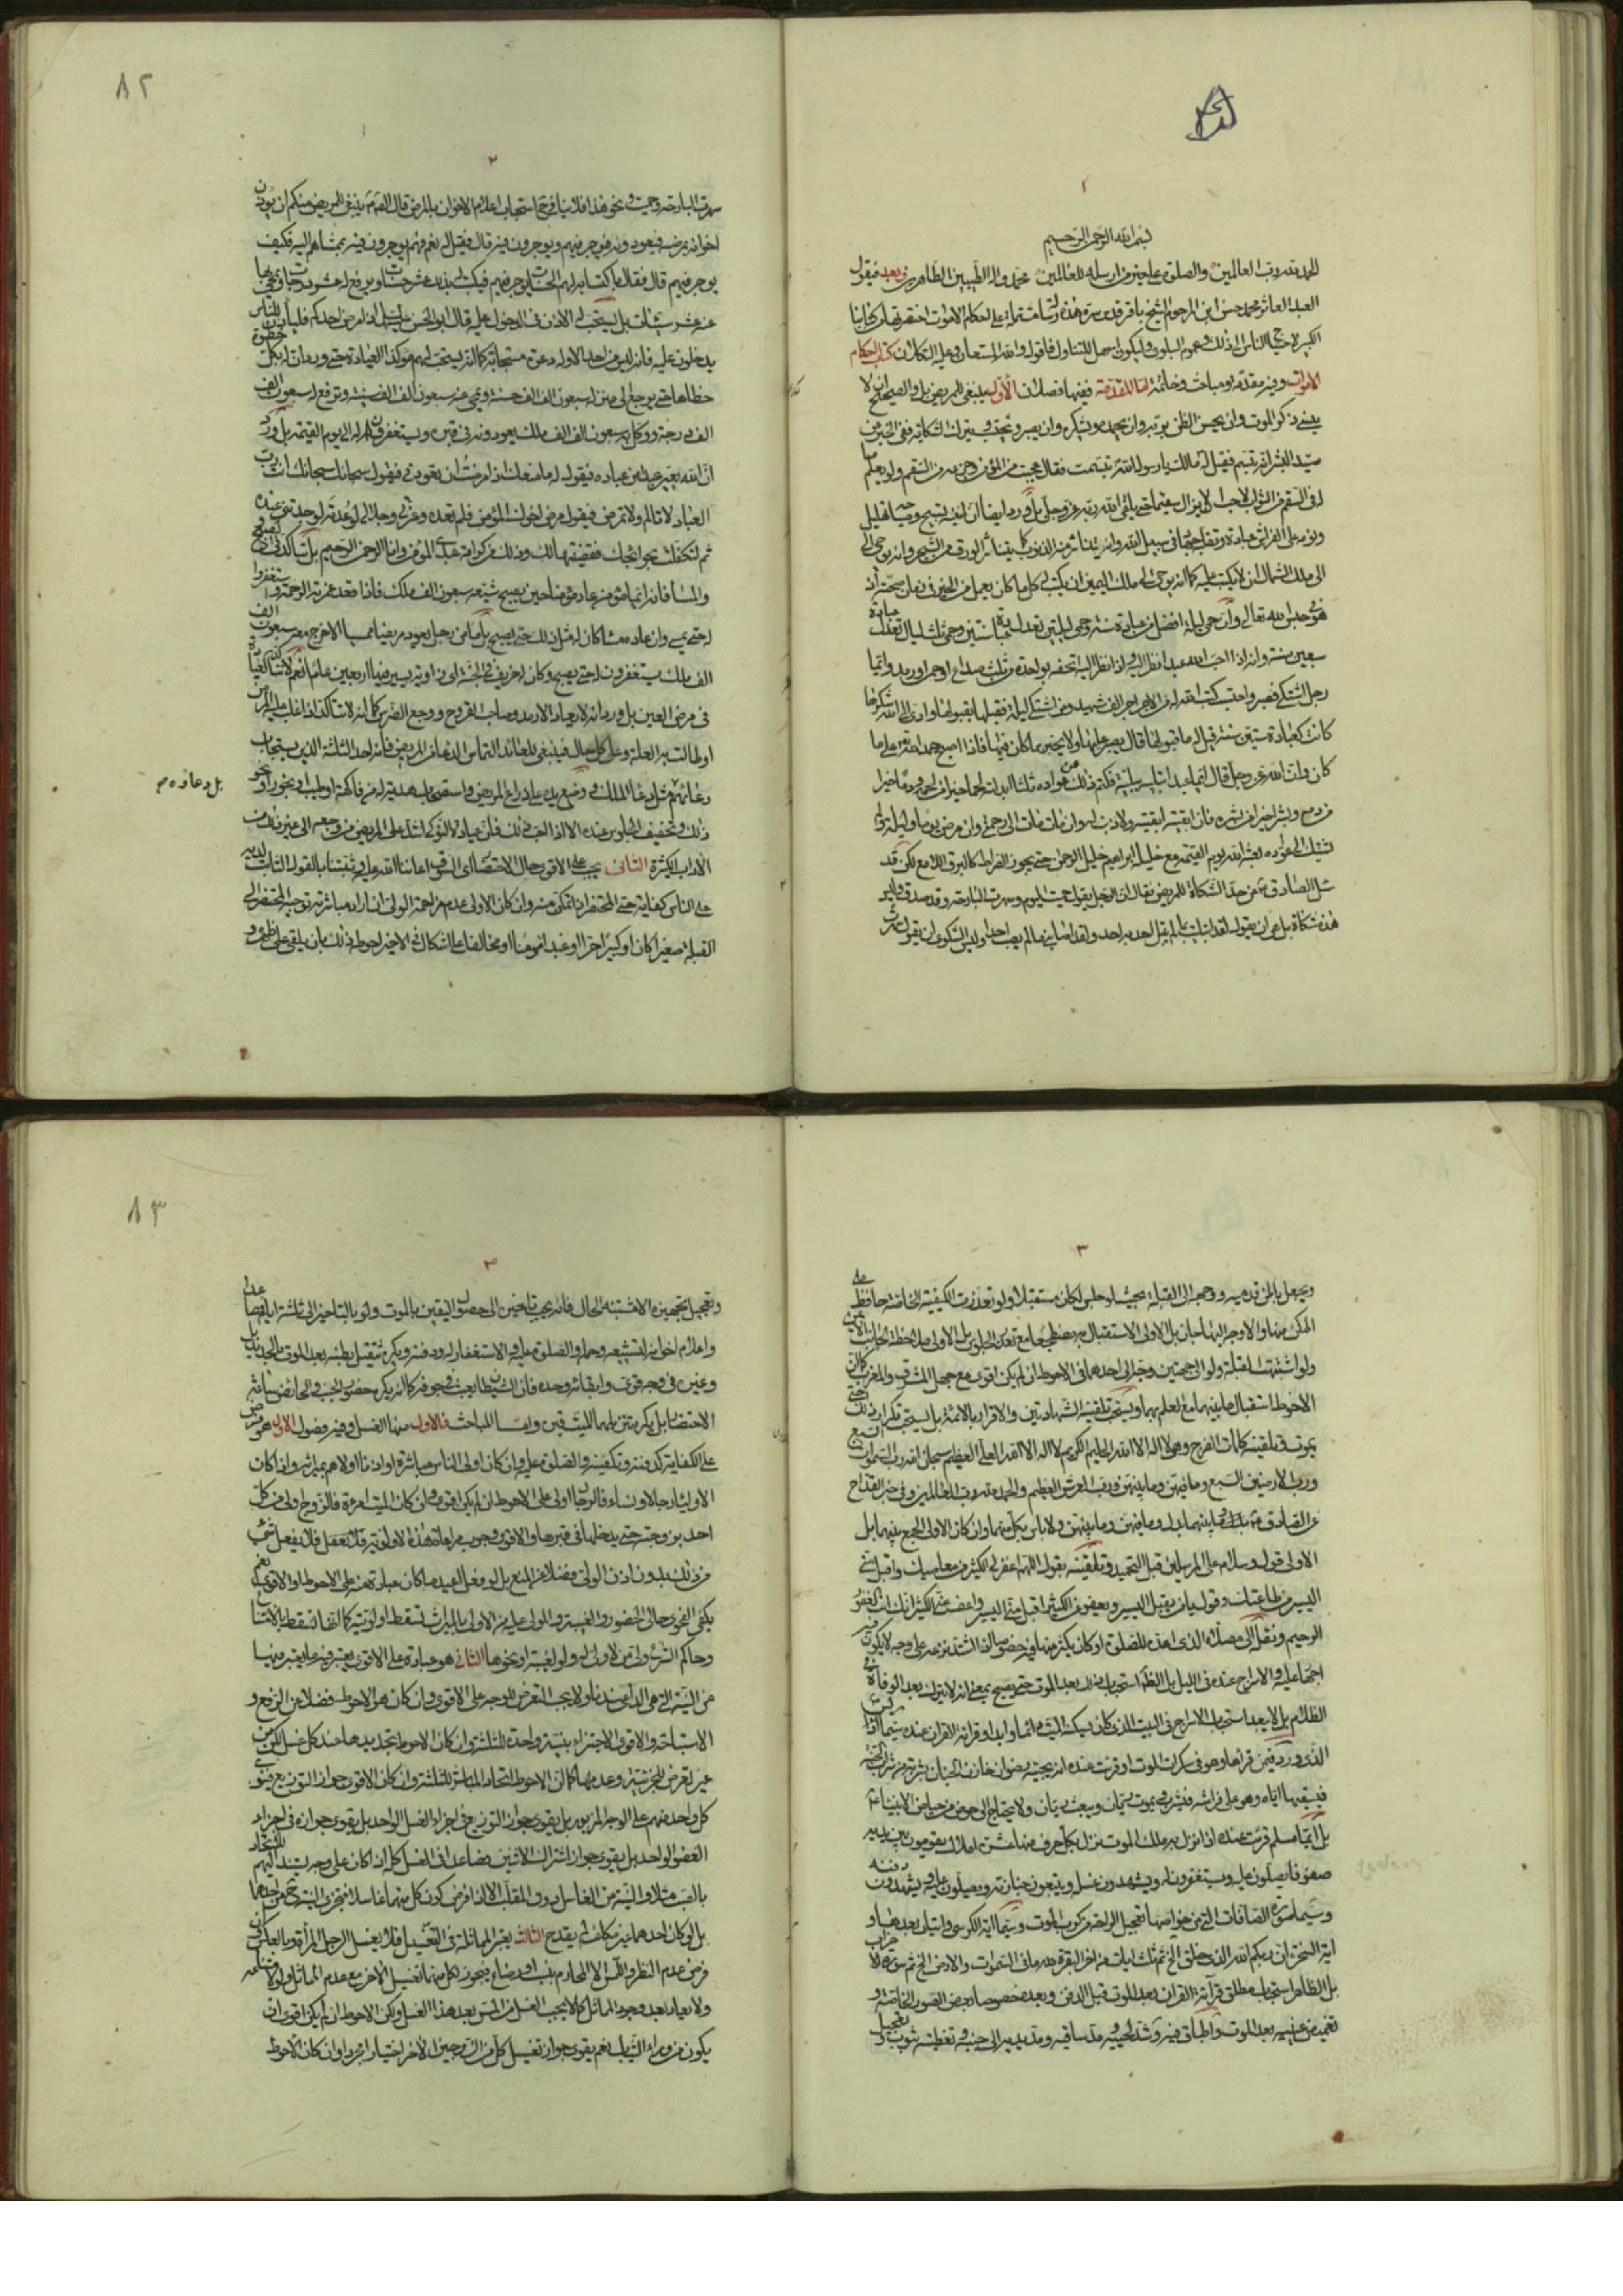 ١
بسم الله الرحمن الرحيم
الحمد لله رب العالمين والصلوة على خير من ارسله للعالمين محمد واله الطيبين الطاهرين وبعد فيقول
العبد العاثر محمد حسن ابن المرحوم الشيخ باقر قدس سره هذه رسالة مشتملة على احكام الاموات اختصرتها من كتابنا
الكبير لاحتياج الناس الى ذلك وعموم البلوى وليكون اسهل للتناول فاقول والله المستعان وعليه التكلان كتاب احكام
الاموات وفيه مقدمة ومباحث وخاتمة اما المقدمة ففيها فصلان الاول ينبغي للمريض بل والصحيح ان لا
ينسى ذكر الموت وان يحسن الظن بربه وان يحمده ويشكره وان يصبر ويحتسب ويترك الشكاية ففي الخبر عن
سيد البشر انه تبسم فقيل له مالك يا رسول الله تبسمت فقال عجبت من المؤمن وجزعه من السقم ولو يعلم ما
له في السقم من الثواب لاحب ان لا يزال سقيما حتى يلقى الله ربه عز وجل بل ورد ايضا ان انينه تسبيح وصياحه تهليل
ونومه على الفراش عبادة وتقلبه جهاد في سبيل الله وانه يتناثر منه الذنوب كما يتناثر الورق من الشجر وانه يوحى
الى ملك الشمال ان لا يكتب عليه كما انه يوحى الى ملك اليمين ان يكتب له كل ما كان يعمل من الخير في زمان صحته اذ
هو في حبس الله تعالى وان حمى ليلة افضل من عبادة سنة وحمى ليلتين تعدل عبادة سنتين وحمى ثلث ليال تعدل عبادة
سبعين سنة وانه اذا احب الله عبدا نظر اليه فاذا نظر اليه اتحفه بواحدة من ثلث صداع او حمى او رمد وايما
رجل اشتكى فصبر واحتسب كتب الله له من الاجر اجر الف شهيد ومن اشتكى ليلة فقبلها بقبولها وادى الى الله شكرها
كانت كعبادة ستين سنة قيل له ما قبولها قال يصبر عليها ولا يخبر بما كان فيها فاذا اصبح حمد الله تعالى على ما
كان وان الله عز وجل قال ايما عبد ابتليته ببلية فكتم ذلك من عواده ثلثا ابدلته لحما خيرا من لحمه ودما خيرا
من دمه وبشرا خيرا من بشره فان ابقيته ابقيته ولا ذنب له وان مات مات الى رحمتي وان مرض يوما وليلة ولم
يشتك الى عواده بعثه الله يوم القيمة مع خليله ابراهيم خليل الرحمن حتى يجوز الصراط كالبرق اللامع لكن قد
سئل الصادق ع عن حد الشكاة للمريض فقال ان الرجل يقول حممت اليوم وسهرت البارحة وقد صدق وليس
هذه شكاة بل هي ان يقول لقد ابتليت بما لم يبتل احد به احد ولقد اصابني ما لم يصب احدا وليس الشكوى ان يقول
٨٢
٢
سهرت البارحة وحميت ونحو هذا فلا ينافي ح استحباب اعلام الاخوان بالمرض قال الصادق ع ينبغي للمريض منكم ان يؤذن
اخوانه بمرضه فيعودونه فيوجر فيهم ويوجرون فيه قال فقيل له نعم فهم يوجرون فيه بمشاهم اليه فكيف
يوجر فيهم قال فقال باكتسابه لهم الحسنات يوجر فيهم فيكتب له بذلك عشر حسنات ويرفع له عشر درجات ويمحى بها
عنه عشر سيئات بل يستحب له الاذن في الدخول عليه قال ابو الحسن ع اذا مرض احدكم فليأذن للناس
يدخلون عليه فانه ليس من احد الا وله دعوة مستجابة كما انه يستحب لهم مؤكدا العيادة حتى ورد ان له بكل خطوة
خطاها حتى يرجع الى منزله سبعون الف الف حسنة ويمحى عنه سبعون الف الف سيئة وترفع له سبعون الف
الف درجة ووكل به سبعون الف الف ملك يعودونه في قبره ويستغفرون له الى يوم القيمة بل ورد
ان الله يعير عبدا من عباده فيقول له ما منعك اذ مرضت ان تعودني فيقول سبحانك سبحانك انت رب
العباد لا تالم ولا تمرض فيقول مرض اخوك المؤمن فلم تعده وعزتي وجلالي لو عدته لوجدتني عنده
ثم لتكفلت بحوائجك فقضيتها لك وذلك من كرامة عبدي المؤمن وانا الرحمن الرحيم بل تتاكد في الصبح
والمساء فانه ايما مؤمن عاد مؤمنا حين يصبح شيعه سبعون الف ملك فاذا قعد غمرته الرحمة واستغفروا
له حتى يمسي وان عاده مساء كان له مثل ذلك حتى يصبح بل ما من رجل يعود مريضا ممسيا الا خرج معه سبعون الف
الف ملك يستغفرون له حتى يصبح وكان له خريف في الجنة اي زاوية يسير فيها اربعين عاما نعم لا تتاكد العيادة
في مرض العين بل ورد انه لا يعاد الارمد وصاحب القروح ووجع الضرس كما انه لا تتاكد اذا غلب عليه المرض
اوطالت به العلة وعلى كل حال فينبغي للعائد التماس الدعاء من المريض فانه احد الثلثة الذين يستجاب
دعائهم مثل دعاء الملئكة ووضع يده على ذراع المريض واستصحاب هدية له من فاكهة او طيب او بخور او نحو
ذلك وتخفيف الجلوس عنده الا اذا احب ذلك فان عيادة النوكى اشد على المريض من وجعه الى غير ذلك من
الاداب الكثيرة الثاني يجب على الاقوى حال الاحتضار اي السوق اعاننا الله عليه وثبتنا بالقول الثابت لديه
على الناس كفاية حتى المحتضر ان تمكن منه وان كان الاولى عدم مزاحمة الولي ان اراد مباشرته توجيه المحتضر الى
القبلة صغيرا كان او كبيرا حرا او عبدا مؤمنا او مخالفا على اشكال في الاخير احوطه ذلك بان يلقى على ظهره و
بل دعاؤه م
٣
ويجعل باطن قدميه ووجهه الى القبلة بحيث لو جلس لكان مستقبلا ولو تعذرت الكيفية الخاصة حافظ على
الممكن منها والا وجه اليها جالسا بل الاولى الاستقبال به مضطجعا مع تعذر الجلوس بل الاولى ملاحظة الجانب الايمن
ولو اشتبهت القبلة ولو الى جهتين وجه الى احدهما في الاحوط ان لم يكن اقوى مع جهل المشرق والمغرب كما ان
الاحوط استقبال ما بينهما مع العلم بهما ويستحب تلقينه الشهادتين والاقرار بالائمة بل يستحب تكرار ذلك حتى
يموت وتلقينه كلمات الفرج وهي لا اله الا الله الحليم الكريم لا اله الا الله العلي العظيم سبحان الله رب السموات السبع
ورب الارضين السبع وما فيهن وما بينهن ورب العرش العظيم والحمد لله رب العالمين وفي خبر القداح
عن الصادق ع وما بينهما بدل وما فيهن وما بينهن ولا باس بكل منهما وان كان الاولى الجمع بينهما بل
الاولى قول وسلام على المرسلين قبل التحميد وتلقينه بقول اللهم اغفر لي الكثير من معاصيك واقبل مني
اليسير من طاعتك وقول يا من يقبل اليسير ويعفو عن الكثير اقبل مني اليسير واعف عني الكثير انك انت العفو
الرحيم ونقله الى مصلاه الذي اعده للصلوة او كان يكثر منها فيه خصوصا اذا اشتد نزعه على وجه لا يكون فيه
اجحافا عليه والاسراج عنده في الليل بل الظاهر استحباب ذلك بعد الموت حتى يصبح بمعنى انه لا يترك بعد الوفاة في
الظلام بل لا يبعد استحباب الاسراج في البيت الذي كان يسكنه الميت دائما وابدا وقراءة القرآن عنده سيما يس
الذي ورد فيمن قراها وهو في سكرات الموت او قرئت عنده انه يجيئه رضوان خازن الجنان بشربة من شراب الجنة
فيسقيها اياه وهو على فراشه فيشرب فيموت ريان ويبعث ريان ولا يحتاج الى حوض من حياض الانبياء
بل ايما مسلم قرئت عنده اذا نزل به ملك الموت نزل بكل حرف منها عشرة املاك يقومون بين يديه
صفوفا يصلون عليه ويستغفرون له ويشهدون غسله ويتبعون جنازته ويصلون عليه ويشهدون دفنه
وسيما سورة الصافات التي من خواصها تعجيل الراحة من كرب الموت وسيما اية الكرسي وايتان بعدها و
اية السخرة ان ربكم الله الذي خلق الخ ثم ثلث ايات من اخر البقرة لله ما في السموات والارض الخ ثم سورة الاحزاب
بل الظاهر استحباب مطلق قراءة القران بعد الموت قبل الدفن وبعده خصوصا بعض الصور الخاصة و
تغميض عينيه بعد الموت واطباق فيه وشد لحييه ومد ساقيه ومد يديه الى جنبيه وتغطيته بثوب وتعجيل
٨٣
٣
وتعجيل تجهيزه الا مشتبه الحال فانه يجب تاخيره الى حصول اليقين بالموت ولو بالتاخير الى ثلثة ايام فصاعدا
واعلام اخوانه لتشييعه وحمله والصلوة عليه والاستغفار له ودفنه ويكره تثقيل بطنه بعد الموت بالحديد بل
وغيره في وجه قوي وابقائه وحده فان الشيطان يعبث في جوفه كما انه يكره حضور الجنب والحائض ساعة
الاحتضار بل يكره تنزيلهما الميت قبره واما المباحث فالاول منها الغسل وفيه فصول الاول هو فرض
على الكفاية كدفنه وتكفينه والصلوة عليه وان كان اولى الناس مباشرة او اذنا اولاهم بميراثه واذا كان
الاولياء رجالا ونساء فالرجال اولى على الاحوط ان لم يكن اقوى وان كان الميت امرءة فالزوج اولى من كل
احد بزوجته حتى يدخلها في قبرها والاقوى وجوب مراعاة هذه الاولوية فلا تغسل فلا يفعل شيء
من ذلك بدون اذن الولي فضلا عن المنع بل لو فعل اعيد ما كان عبادة منه على الاحوط والاقوى نعم
يكفي الفحوى حالي الحضور والغيبة والمولى عليه من الاولى بالميراث تسقط اولويته كما انها تسقط بالامتناع
وحاكم الشرع ولي من لا ولي له ولو لغيبته او نحوها الثاني هو عبادة على الاقوى يعتبر فيه ما يعتبر فيها
من النية التي هي الداعي عندنا ولا يجب التعرض للوجه على الاقوى وان كان هو الاحوط فضلا عن الرفع و
الاستباحة والاقوى الاجتزاء بنية واحدة للثلثة وان كان الاحوط تجديدها عند كل غسل لكن من
غير تعرض للجزئية وعدمها كما ان الاحوط اتحاد المباشر للثلثة وان كان الاقوى جواز التوزيع فينوي
كل واحد منهم على الوجه المزبور بل يقوى جواز التوزيع في اجزاء الغسل الواحد بل يقوى جوازه في اجزاء
العضو الواحد بل يقوى جواز اشتراك الاثنين فصاعدا في الغسل كله اذا كان على وجه يستند اليهم
بالصب مثلا والنية من الغاسل دون المقلب الا اذا فرض كون كل منهما غاسلا فتجزي النية ح من احدهما
بل لو كان احدهما غير مكلف لم يقدح الثالث يعتبر المماثلة في التغسيل فلا يغسل الرجل المرأة وبالعكس وان
فرض عدم النظر واللمس الا المحارم بنسب او رضاع فيجوز لكل منهما تغسيل الاخر مع عدم المماثل
ولا يعاد بعد وجود المماثل كما لا يجب الغسل من المس بعد هذا الغسل ولكن الاحوط ان لم يكن اقوى ان
يكون من وراء الثياب نعم يقوى جواز تغسيل كل من الزوجين الاخر اختيارا مجردا وان كان الاحوط